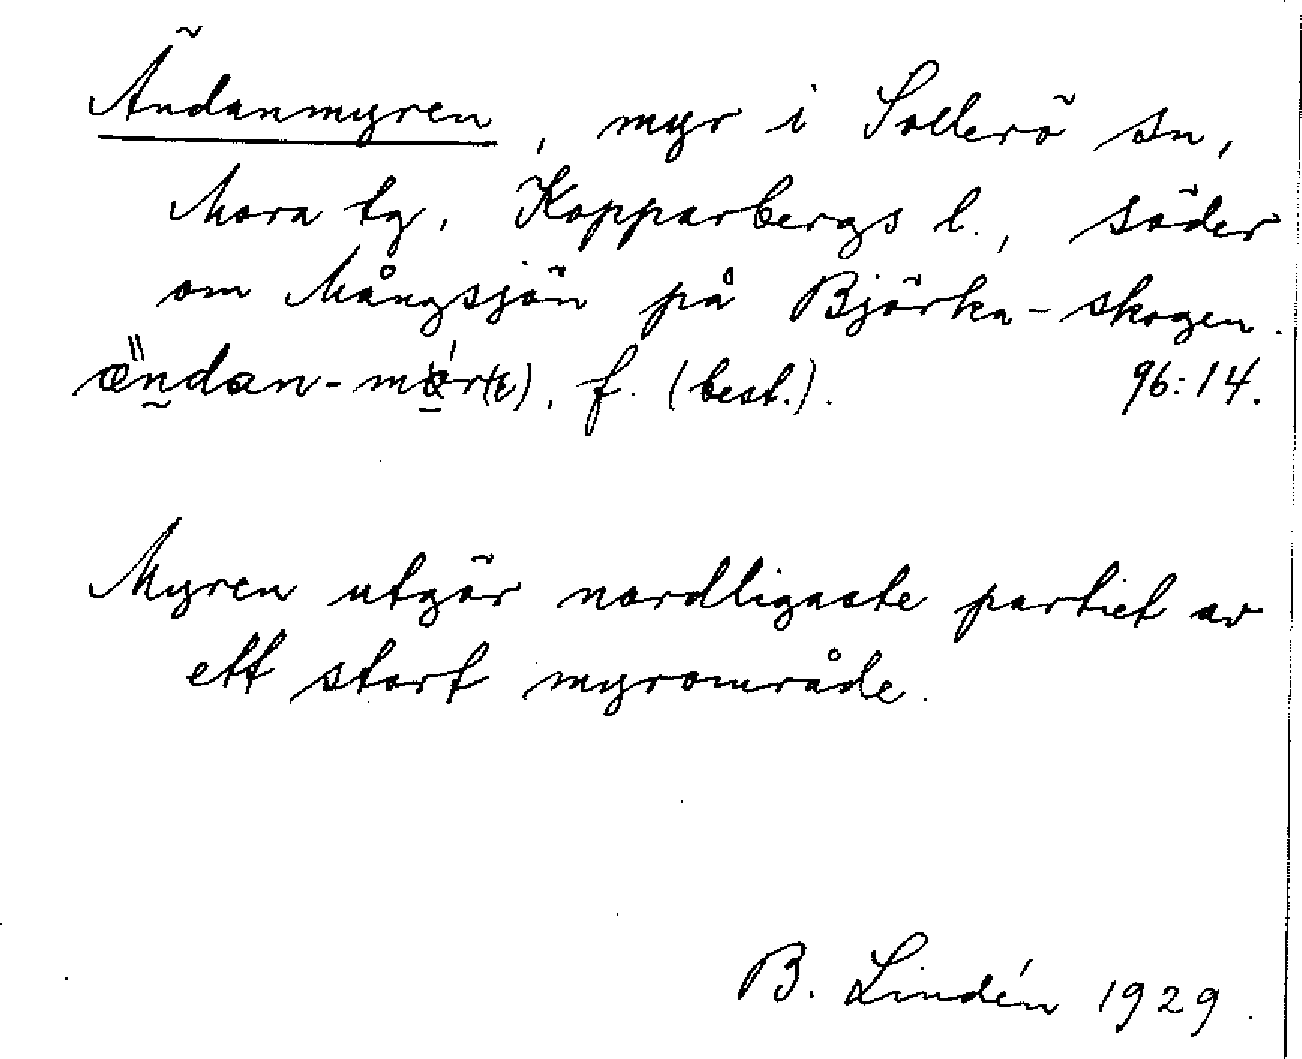 Ändanmyren, myr i Sollerö sn,
Mora tg, Kopparbergs l., söder
om Mångsjön på Björka-skogen.
f. (best.). 96:14.
Myren utgör nordligaste partiet av
ett stort myrområde.
B. Lindén 1929.